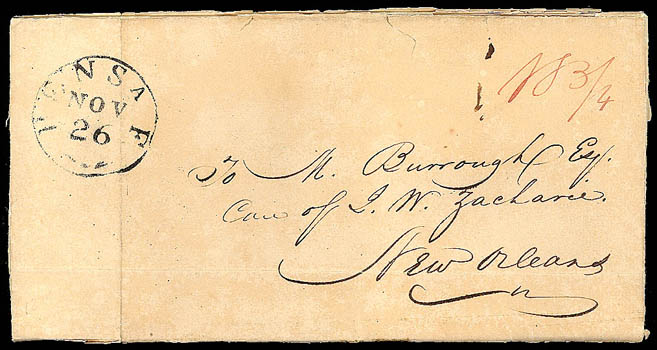 PENSA F
NOV
26
18 3/4
To M. Burrough Esq.
Care of J. W. Zacharie.
New Orleans